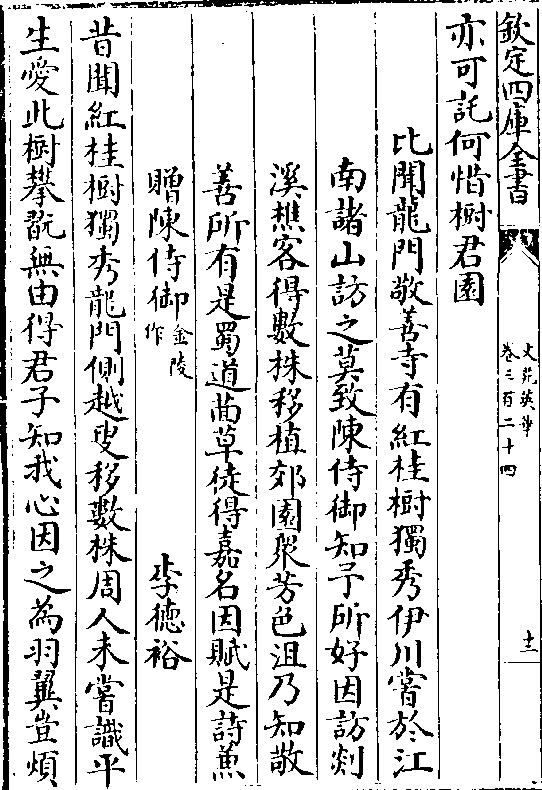 欽定四庫全書
文苑英華
卷三百二十四
十二
亦可託何惜樹君園
比聞龍門敬善寺有紅桂樹獨秀伊川嘗於江
南諸山訪之莫致陳侍御知予所好因訪剡
溪樵客得數株移植郊園衆芳色沮乃知敬
善所有是蜀道菵草徒得嘉名因賦是詩兼
贈陳侍御金陵作 李德裕
昔聞紅桂樹獨秀龍門側越叟移數株周人未嘗識平
生愛此樹攀翫無由得君子知我心因之為羽翼豈煩